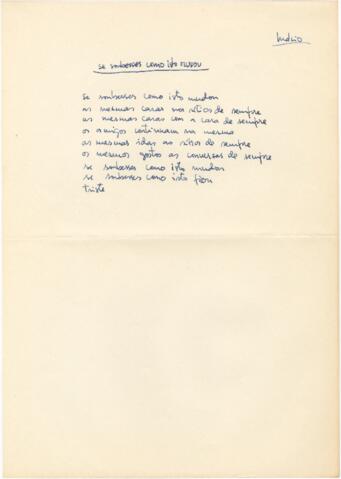 Inédito
se soubesses como isto mudou
se soubesses como isto mudou
as mesmas caras nos sítios de sempre
as mesmas caras com a cara de sempre
os amigos continuam na mesma
as mesmas idas aos sítios de sempre
os mesmos gostos as conversas de sempre
se soubesses como isto mudou
se soubesses como isto ficou
triste